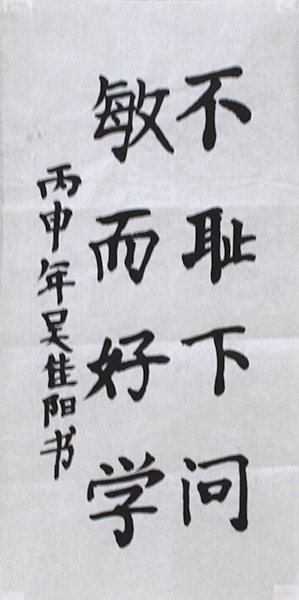 不耻下问
敏而好学
丙申年吴佳阳书